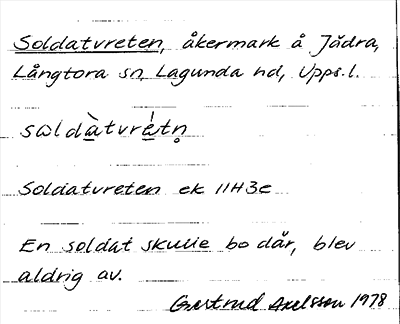 Soldatvreten, åkermark å Jädra,
Långtora sn, Lagunda hd, Upps.l.
sωldàtvrétn̥
Soldatvreten ek 11H3e
En soldat skulle bo där, blev
aldrig av.
Gertrud Axelsson 1978